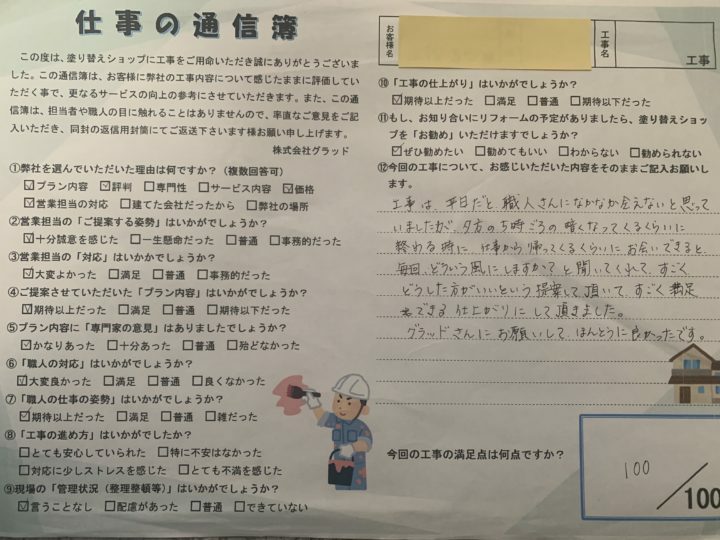 仕事の通信簿
この度は、塗り替えショップに工事をご用命いただき誠にありがとうございま
した。この通信簿は、お客様に弊社の工事内容について感じたままに評価してい
ただく事で、更なるサービスの向上の参考にさせていただきます。また、この通
信簿は、担当者や職人の目に触れることはありませんので、率直なご意見をご記
入いただき、同封の返信用封筒にてご返送下さいます様お願い申し上げます。
株式会社グラッド
①弊社を選んでいただいた理由は何ですか？（複数回答可）
☑プラン内容 ☑評判 □専門性 □サービス内容 ☑価格
☑営業担当の対応 □建てた会社だったから □弊社の場所
②営業担当の「ご提案する姿勢」はいかがでしょうか？
☑十分誠意を感じた □一生懸命だった □普通 □事務的だった
③営業担当の「対応」はいかがでしょうか？
☑大変よかった □満足 □普通 □事務的だった
④ご提案させていただいた「プラン内容」はいかがでしょうか？
☑期待以上だった □満足 □普通 □期待以下だった
⑤プラン内容に「専門家の意見」はありましたでしょうか？
☑かなりあった □十分あった □普通 □殆どなかった
⑥「職人の対応」はいかがでしょうか？
☑大変良かった □満足 □普通 □良くなかった
⑦「職人の仕事の姿勢」はいかがでしょうか？
☑期待以上だった □満足 □普通 □雑だった
⑧「工事の進め方」はいかがでしたか？
□とても安心していられた □特に不安はなかった
□対応に少しストレスを感じた □とても不満を感じた
⑨現場の「管理状況（整理整頓等）」はいかがでしょうか？
☑言うことなし □配慮があった □普通 □できていない
お客様名
工事名
工事
⑩「工事の仕上がり」はいかがでしょうか？
☑期待以上だった □満足 □普通 □期待以下だった
⑪もし、お知り合いにリフォームの予定がありましたら、塗り替えショッ
プを「お勧め」いただけますでしょうか？
☑ぜひ勧めたい □勧めてもいい □わからない □勧められない
⑫今回の工事について、お感じいただいた内容をそのままご記入お願いし
ます。
工事は、平日だと職人さんになかなか会えないと思って
いましたが、夕方の5時ごろの暗くなってくるくらいに
終わる時に、仕事から帰ってくるくらいにお会いできると、
毎回、どういう風にしますか？と聞いてくれて、すごく
どうした方がいいという提案して頂いて、すごく満足
できる仕上がりにして頂きました。
グラッドさんにお願いして、ほんとうに良かったです。
今回の工事の満足点は何点ですか？
100
／100